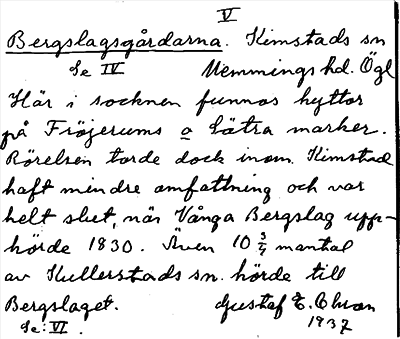 V
Bergslagsgårdarna. Kimstads sn
Se IV Memmings hd. Ögl
Här i socknen funnos hyttor
på Fröjerums o Sätra marker.
Rörelsen torde dock inom Kimstad
haft mindre omfattning och var
helt slut, när Vånga Bergslag upp-
hörde 1830. Även 10 3/4 mantal
av Kullerstads sn. hörde till
Bergslaget. Gustaf E.
Se: VI. 1937